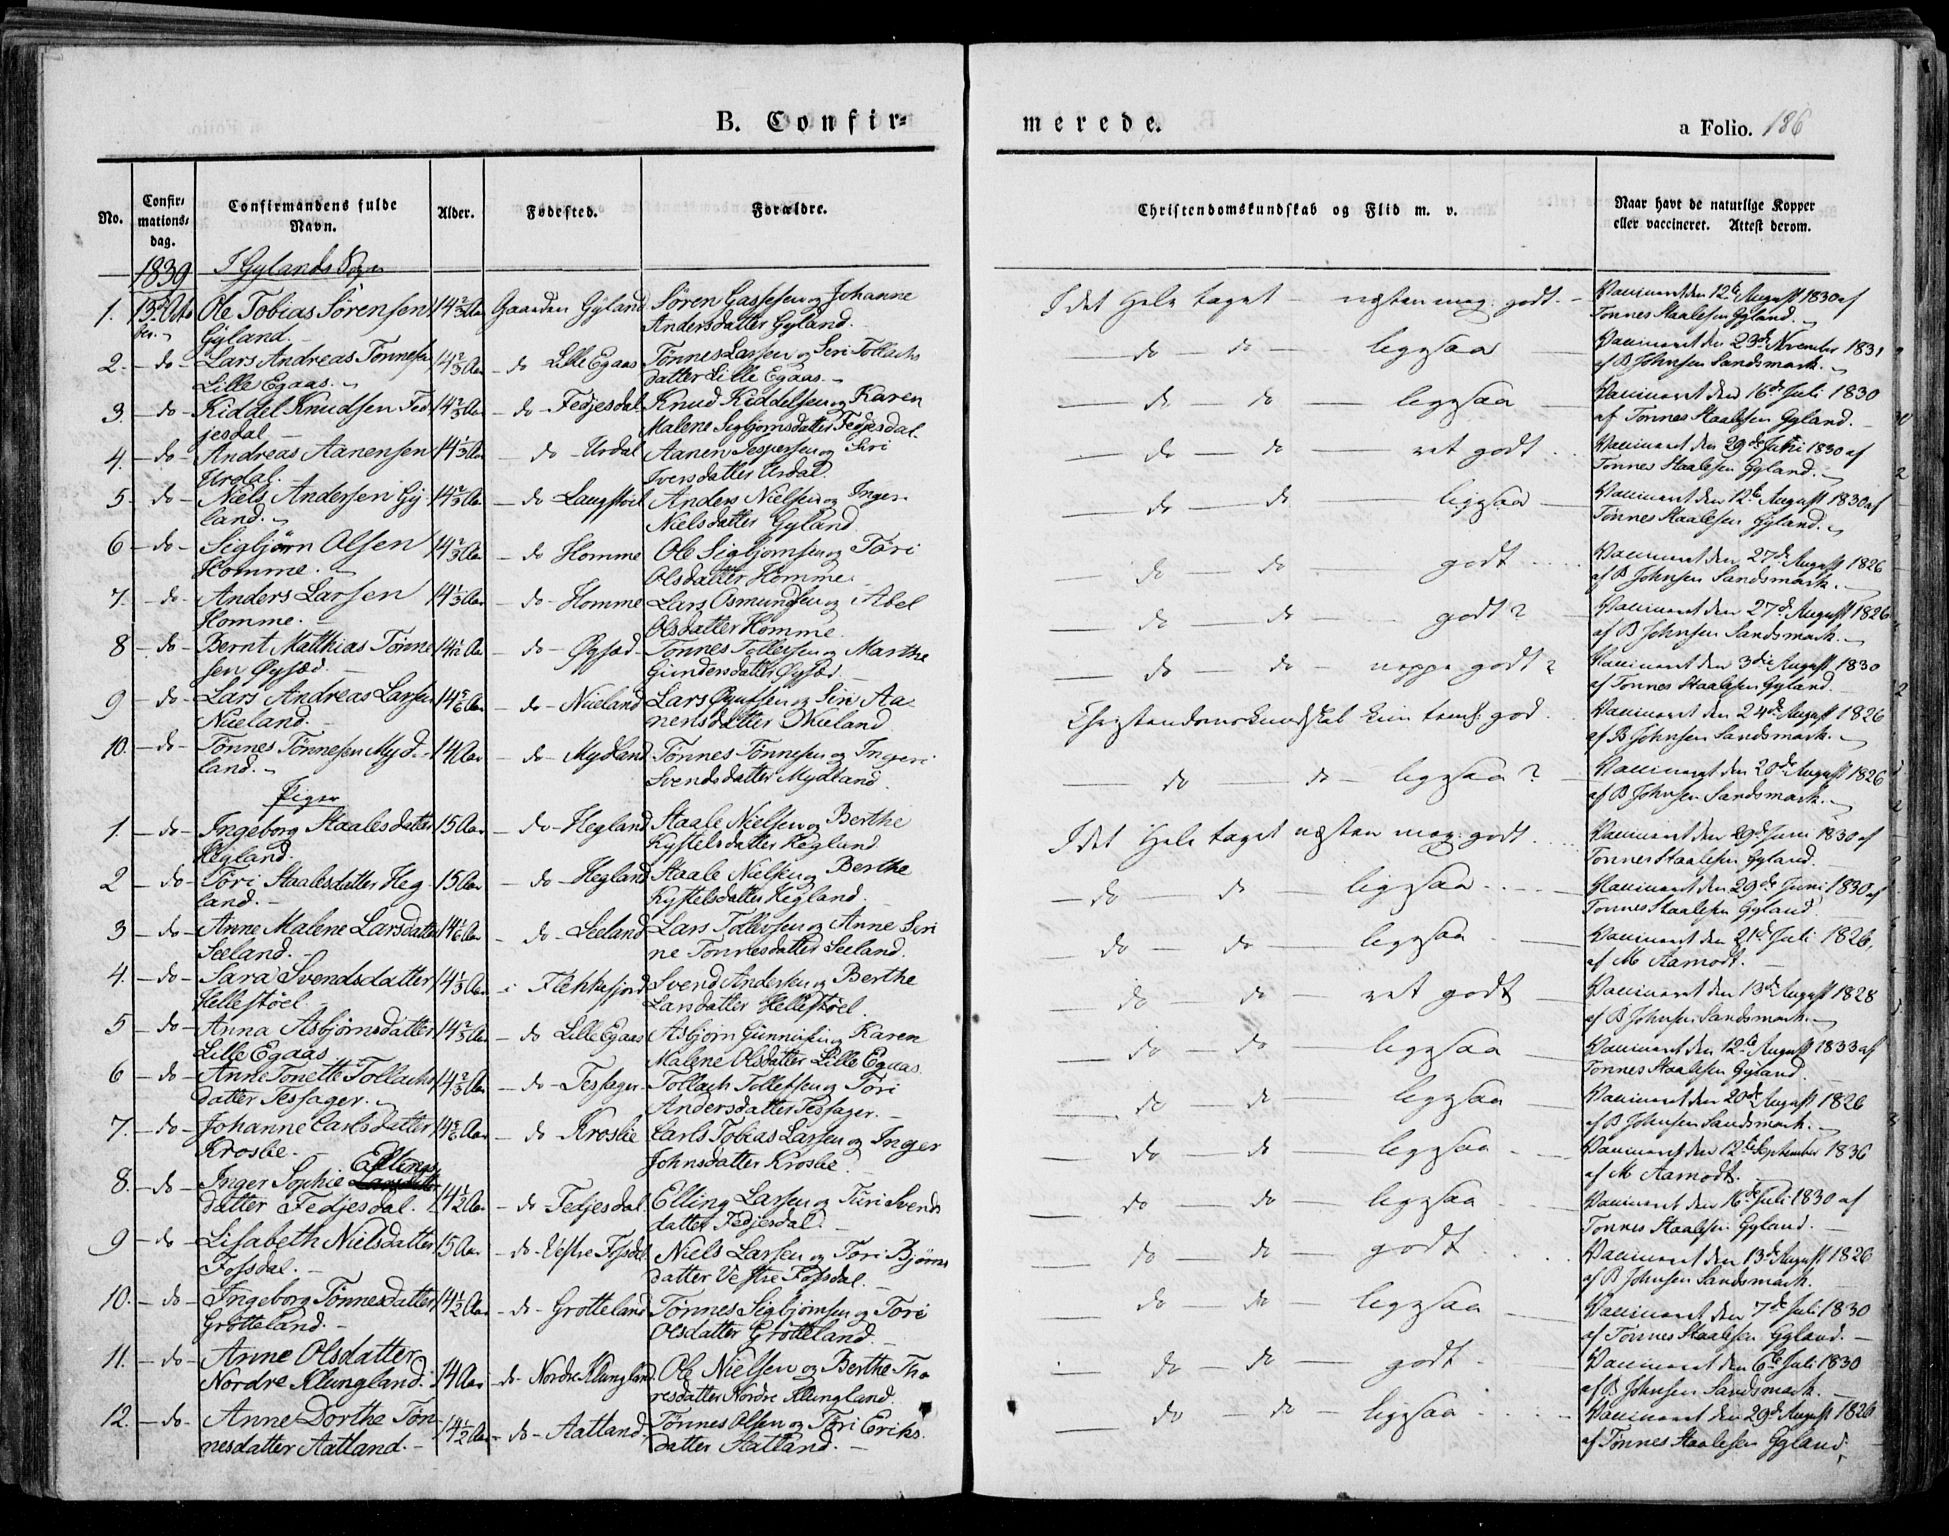 B. Confir=
merede.
a Folio. 186
No.
Confir-
mations-
dag.
Confirmandens fulde
Navn.
Alder.
Fødested.
Forældre.
Christendomskundskab og Flid m. v.
Naar havt de naturlige Kopper
eller vaccineret. Attest derom.
1839 I Gylands Sogn
1. 13de Octo Ole Tobias Sörensen 14 2/3 Aar Gaarden Gyland Sören Gassesen og Johanne I det Hele taget – næsten meg. godt. – Vaccineret den 12te August 1830 af
ber. Gyland – Andersdatter Gyland. Tönnes Staalesen Gyland.
2. – do – Lars Andreas Tönnesen 14 2/3 Aar – do Lille Egaas Tönnes Larsen og Seri Tollachs – do – do – ligesaa Vaccineret den 23de November 1831
Lille Egaas. datter Lille Egaas. af B Johnsen Sandsmark.
3. – do – Kiddel Knudsen Fed 14 2/3 Aar – do – Fedjesdal Knud Kiddelsen og Karen – do do – ligesaa Vaccineret den 16de Juli 1830
jesdal – Malene Sigbjörnsdatter Fedjesdal. af Tönnes Staalesen Gyland.
4. – do – Andreas Aanensen 14 1/3 Aar – do Urdal Aanen Jespersen og Siri – do do – ret godt Vaccineret den 29de Juni 1830 af
Urdal. Iversdatter Urdal. Tönnes Staalesen Gyland.
5 – do – Niels Andersen Gy 14 2/3 Aar – do Laugstöel Anders Nielsen og Inger – do – do – ligesaa – Vaccineret den 12te August 1830 af
land. Nielsdatter Gyland. Tönnes Staalesen Gyland.
6 – do – Sigbjörn Olsen 14 2/3 Aar – do Homme Ole Sigbjörnsen og Töri – do – do – godt Vaccineret den 27de August 1826
Homme. Olsdatter Homme. af B Johnsen Sandsmark.
7. – do – Anders Larsen 14 1/3 Aar – do – Homme Lars Osmundsen og Abel – do – do – godt? Vaccineret den 27de August 1826
Homme. – Olsdatter Homme. af B Johnsen Sandsmark.
8 – do – Bernt Matthias Tönne 14 1/2 Aar – do – Öysæd Tönnes Tollefsen og Marthe – do – do – neppe godt? Vaccineret den 3die August 1830
sen Öysæd. – Gundersdatter Öysæd. af Tönnes Staalesen Gyland.
9 – do – Lars Andreas Larsen 14 5/6 Aar – do – Nüeland Lars Öyufsen og Siri Aa Christendomskundskab kun teml: god. Vaccineret den 24de August 1826
Nüeland. – nensdatter Nüeland af B Johnsen Sandsmark.
10. – do – Tönnes Tönnesen Myd 14 Aar – do – Mydland Tönnes Tönnesen og Ingeri – do – do – ligesaa? Vaccineret den 20de August 1826
land. Svendsdatter Mydland. af B Johnsen Sandsmark.
Piger
1. – do – Ingeborg Staalesdatter 15 Aar – do – Hegland Staale Nielsen og Berthe I det Hele taget næsten meg. godt. Vaccineret den 29de Juni 1830 af
Hegland. Kystelsdatter Hegland. Tönnes Staalesen Gyland.
2 – do – Töri Staalesdatter Heg 15 Aar – do – Hegland Staale Nielsen og Berthe – do – do – ligesaa Vaccineret den 29de Juni 1830 af
land. – Kystelsdatter Hegland. Tönnes Staalesen Gyland.
3 – do – Anne Malene Larsdatter 14 1/6 Aar – do – Seeland Lars Tollevsen og Anne Seri do – do ligesaa Vaccineret den 21de Juli 1826,
Seeland. – ne Tönnesdatter Seeland. af M Aamodt.
4. – do – Sara Svendsdatter 14 1/3 Aar – i Flekkefjord Svend Andersen og Berthe do – do – ret godt – Vaccineret den 13de August 1828
Hellestöel – Larsdatter Hellestöel. af B Johnsen Sandsmark.
5 – do – Anna Asbjörnsdatter 14 2/3 Aar – do Lille Egaas Asbjörn Gunnufsen og Karen – do – do – ligesaa Vaccineret den 12te August 1833 af
Lille Egaas Malene Olsdatter Lille Egaas. Tönnes Staalesen Gyland
6 – do – Anne Tonette Tollachs 14 2/3 Aar – do – Tessager Tollach Tollefsen og Töri – do – do – ligesaa Vaccineret den 20de August 1826
datter Tessager. Andersdatter Tessager. – af B Johnsen Sandsmark.
7. – do – Johanne Carlsdatter 14 5/6 Aar – do Krosbe Carls Tobias Larsen og Inger – do – do – ligesaa Vaccineret den 12te September 1836
Krosbe. – Johnsdatter Krosbe. af M Aamodt.
Ellings
8. – do – Inger Sophie Larsdatter 14 1/2 Aar – do – Fedjesdal Elling Larsen og Turi Svends – do – do – ligesaa Vaccineret den 16de Juli 1830 af
datter Fedjesdal. datter Fedjesdal. Tönnes Staalesen Gyland.
9 – do – Lisabeth Nielsdatter 15 Aar – do – Vestre Fossdal Niels Larsen og Töri Bjørns – do – do – godt Vaccineret den 13de August 1826
Fossdal. – datter Vestre Fossdal. af B Johnsen Sandsmark.
10. – do – Ingeborg Tönnesdatter 14 1/2 Aar – do – Grötteland Tönnes Sigbjörnsen og Töri do – do – ligesaa Vaccineret den 7de Juli 1830
Grötteland. – Olsdatter Grötteland. af Tönnes Staalesen Gyland. –
11. – do – Anne Olsdatter 14 Aar – do – Nordre Klungland Ole Nielsen og Berthe Tho do – do – godt – Vaccineret den 6te Juli 1830
Nordre Klungland. resdatter Nordre Klungland. af B Johnsen Sandsmark. –
12. – do – Anne Dorthe Tön 14 1/2 Aar – do – Aatland Tönnes Olsen og Töri Eriks – do – do – ligesaa Vaccineret den 29de August 1826
nesdatter Aatland. – datter Aatland. – af Tönnes Staalesen Gyland.